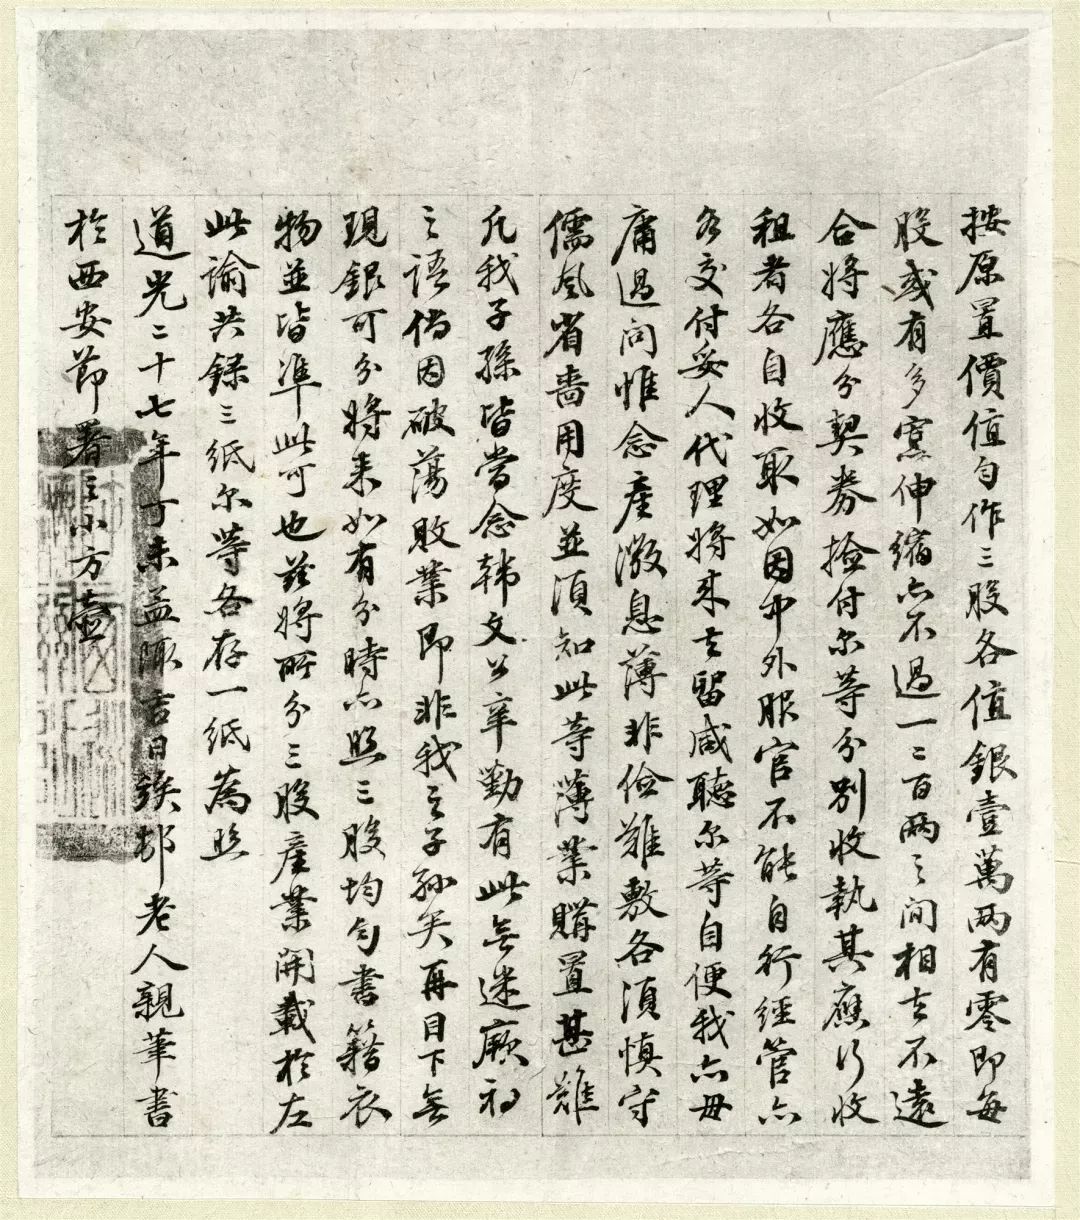 按原置價值勻作三股各值銀壹萬兩有零即每
股或有多寡伸縮亦不過一二百兩之間相去不遠
合將應分契券撿付尔等分別收執其應行收
租者各自收取如因中外服官不能自行經管亦
各交付妥人代理將來去留咸聽尔等自便我亦毋
庸過問惟念產微息薄非儉難敷各須慎守
儒風省嗇用度並須知此等薄業購置甚難
凡我子孫皆當念韩文公辛勤有此無迷厥初
之語倘因破蕩敗業即非我之子孙矣再目下無
現銀可分將來如有分時亦照三股均勻書籍衣
物並皆準此可也茲將所分三股產業開載於左
此諭共録三紙尔等各存一紙為照
道光二十七年丁未孟陬吉日竢邨老人親筆書
於西安節署之小方壺